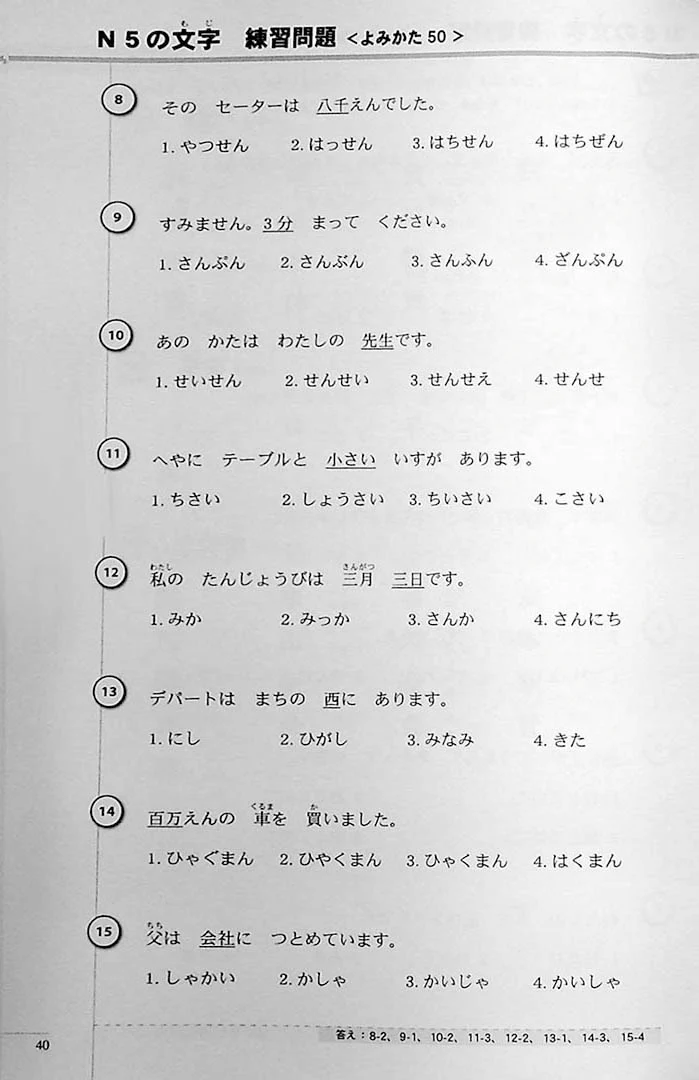 N5の文字 練習問題 <よみかた50>
8 その セーターは 八千えんでした。
1. やつせん 2. はっせん 3. はちせん 4. はちぜん
9 すみません。3分 まって ください。
1. さんぷん 2. さんぶん 3. さんふん 4. ざんぷん
10 あの かたは わたしの 先生です。
1. せいせん 2. せんせい 3. せんせえ 4. せんせ
11 へやに テーブルと 小さい いすが あります。
1. ちさい 2. しょうさい 3. ちいさい 4. こさい
12 私の たんじょうびは 三月 三日です。
1. みか 2. みっか 3. さんか 4. さんにち
13 デパートは まちの 西に あります。
1. にし 2. ひがし 3. みなみ 4. きた
14 百万えんの 車を 買いました。
1. ひゃぐまん 2. ひやくまん 3. ひゃくまん 4. はくまん
15 父は 会社に つとめています。
1. しゃかい 2. かしゃ 3. かいじゃ 4. かいしゃ
答え：8-2、9-1、10-2、11-3、12-2、13-1、14-3、15-4
40